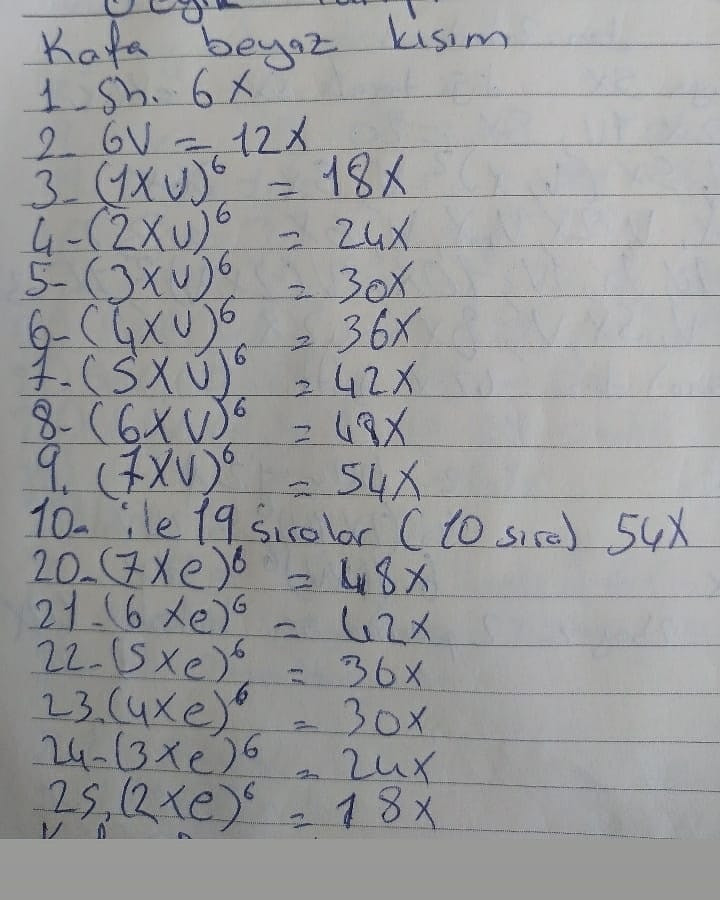 Kafa beyaz kısım
1- Sh. 6X
2- 6V = 12X
3- (1XV)⁶ = 18X
4- (2XV)⁶ = 24X
5- (3XV)⁶ = 30X
6- (4XV)⁶ = 36X
7- (5XV)⁶ = 42X
8- (6XV)⁶ = 48X
9. (7XV)⁶ = 54X
10- ile 19 sıralar (10 sıra) 54X
20- (7Xe)⁶ = 48X
21- (6Xe)⁶ = 42X
22- (5Xe)⁶ = 36X
23. (4Xe)⁶ = 30X
24- (3Xe)6 = 24X
25, (2Xe)⁶ = 18X